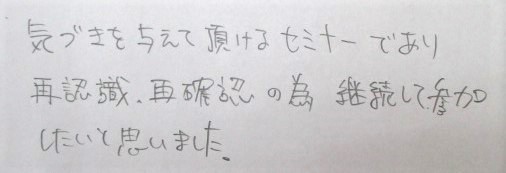 気づきを与えて頂けるセミナーであり
再認識、再確認の為 継続して参加
したいと思いました。